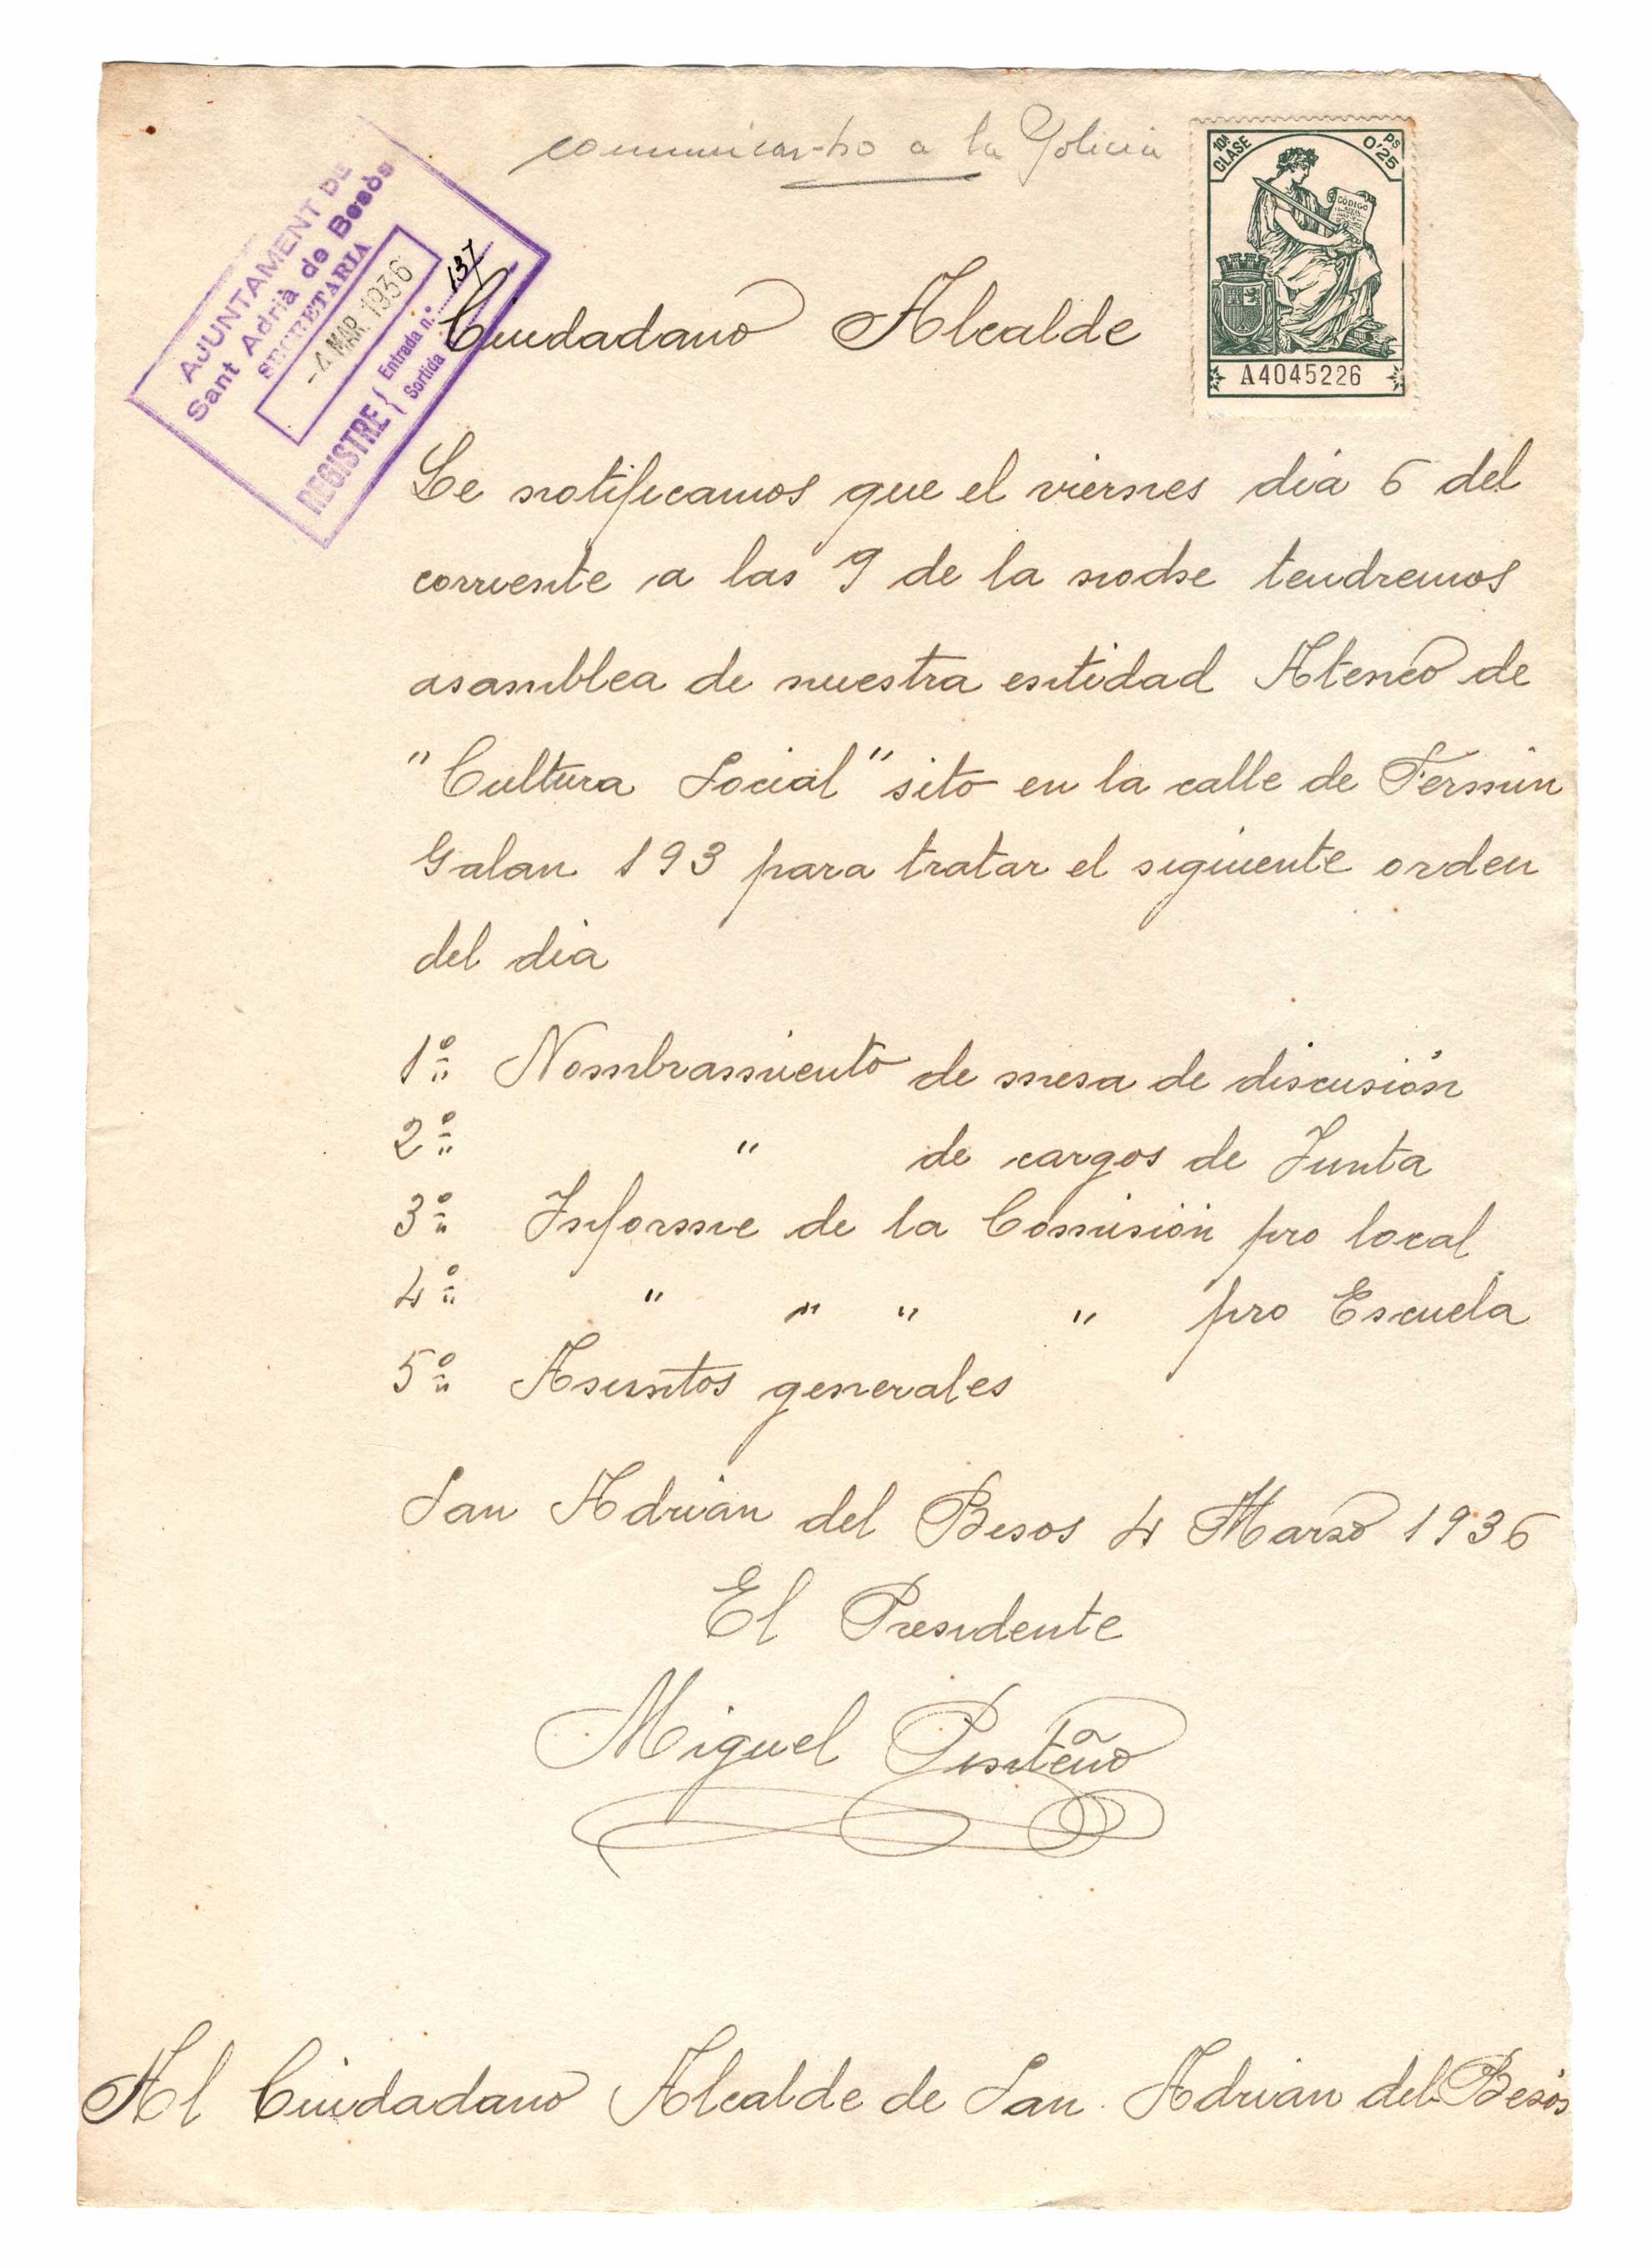 comunicar-ho a la Policia
AJUNTAMENT DE
Sant Adrià de Besòs
SECRETARIA
-4 MAR. 1936
REGISTRE { Entrada n.º 137
Sortida
10ª CLASE
0'25 PS
CÓDIGO
A4045226
Ciudadano Alcalde
Le notificamos que el viernes dia 6 del
corriente a las 9 de la noche tendremos
asamblea de nuestra entidad Ateneo de
"Cultura Social" sito en la calle de Fermin
Galan 193 para tratar el siguiente orden
del dia
1º Nombramiento de mesa de discusión
2º " de cargos de Junta
3º Informe de la Comisión pro local
4º " " " " pro Escuela
5º Asuntos generales
San Adrian del Besos 4 Marzo 1936
El Presidente
Miguel
Al Ciudadano Alcalde de San Adrian del Besós